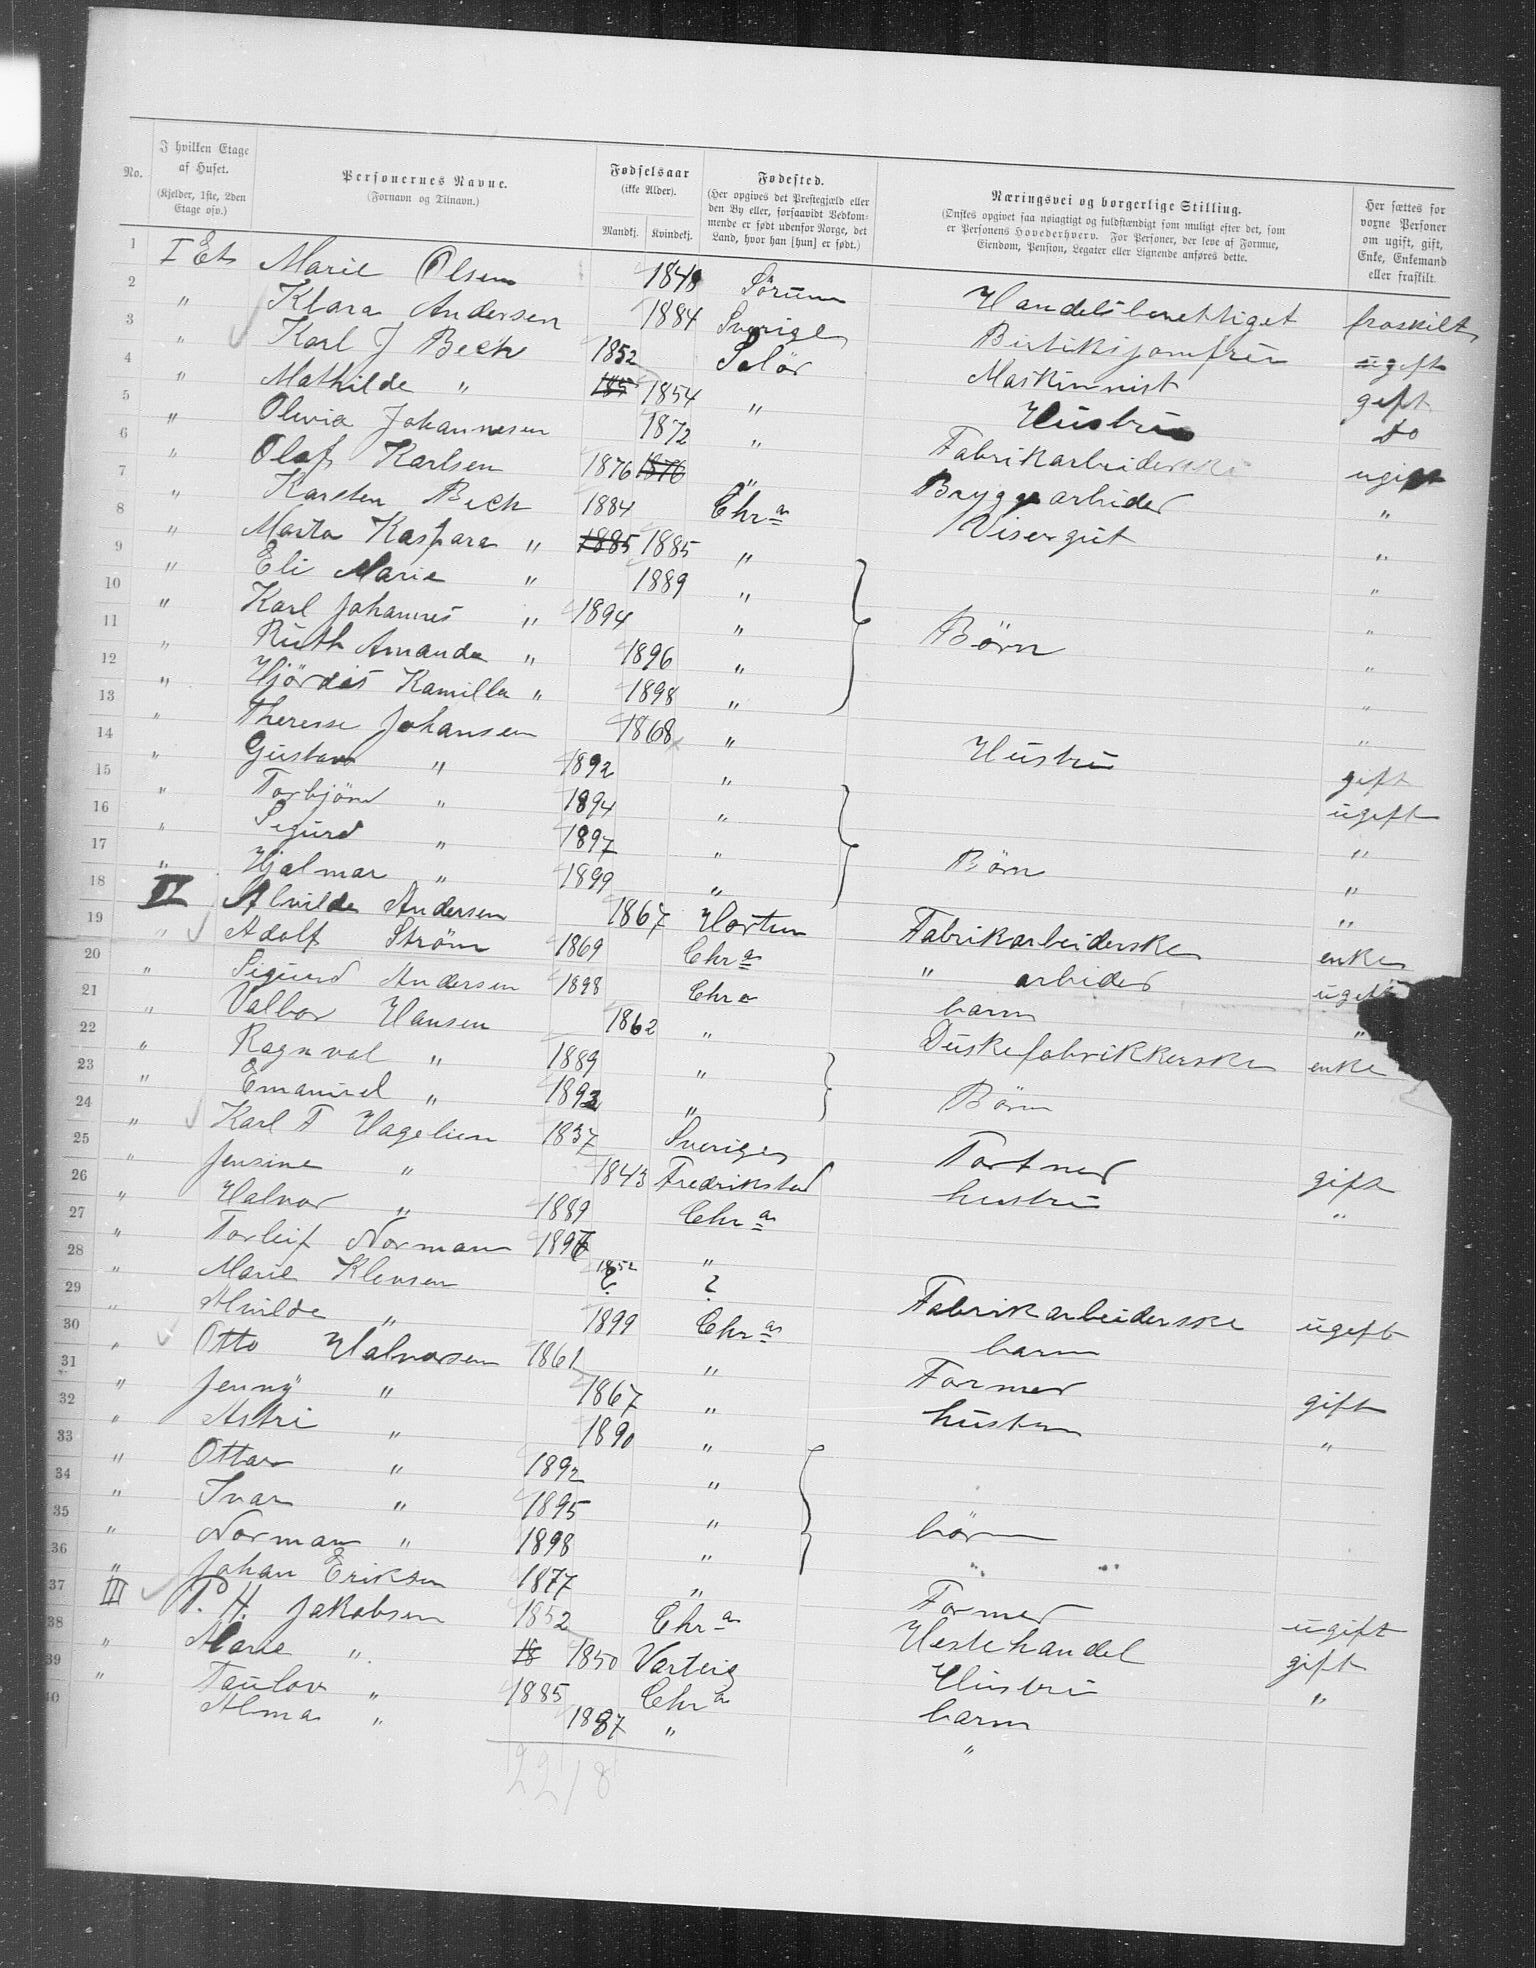 No. | I hvilken Etage af Huset. (Kjelder, 1ste, 2den Etage osv.) | Personernes Navne. (Fornavn og Tilnavn.) | Fødselsaar (ikke Alder). Mandkj. Kvindekj. | Fødested. (Her opgives det Prestegjæld eller den By eller, forsaavidt Vedkommende er født udenfor Norge, det Land, hvor han [hun] er født.) | Næringsvei og borgerlige Stilling. (Ønskes opgivet saa nøiagtigt og fuldstændigt som muligt efter det, som er Personens Hovederhverv. For Personer, der leve af Formue, Eiendom, Pension, Legater eller Lignende anføres dette. | Her sættes for voxne Personer om ugift, gift, Enke, Enkemand eller fraskilt.
1 I Et Marie Olsen 1848 Sørum Handelsberettiget fraskilt
2 " Klara Andersen 1884 Sverige ugift
3 " Karl J Beck 1852 Solør Maskinnist gift
4 " Mathilde " 185 1854 " Hustru do
5 " Olivia Johannesen 1872 " Fabrikarbeiderske ugift
6 " Olaf Karlsen 1876 1876 " Bryggearbeider "
7 " Karsten Beck 1884 Chr a Visergut "
8 " Marta Kaspara " 1885 1885 " "
9 " Eli Marie " 1889 " "
10 " Karl Johannes " 1894 " Børn "
11 " Ruth Amanda " 1896 " "
12 " Hjördis Kamilla " 1898 " "
13 " Therese Johansen 1868 " Hustru gift
14 " Gustav " 1892 " ugift
15 " Torbjörn " 1894 " "
16 " Sigurd " 1897 " Börn "
17 " Hjalmar " 1899 " "
18 II Alvilde Andersen 1867 Horten Fabrikarbeiderske enke
19 " Adolf Ström 1869 Chr a " arbeider ugift
20 " Sigurd Andersen 1898 Chr a barn "
21 " Valbor Hansen 1862 " Duskefabrikkerske enke
22 " Ragnval " 1889 "
23 " Emanuel " 1893 " Börn
24 " Karl F Hagelien 1837 Sverige Tartner gift
25 " Jensine " 1843 Fredrikstad hustru "
26 " Halvor " 1889 Chr a
27 " Torleif Norman 1896 "
28 " Marie Klensen 1852 ? ? Fabrikarbeiderske ugift
29 " Alvilde " 1899 Chr a barn
30 " Otto Halvorsen 1861 " Former gift
31 " Jenny " 1867 " hustru "
32 " Astri " 1890 "
33 " Ottar " 1892 "
34 " Ivar " 1895 " börn
35 " Norman " 1898 "
36 " Johan Eriksen 1877 " Former ugift
37 III P. H. Jakobsen 1852 Chr a Hestehandel gift
38 " Marie " 18 1850 Varteig Hustru "
39 " Taulov " 1885 Chr a barn
40 Alma " 1887 " "
22 18